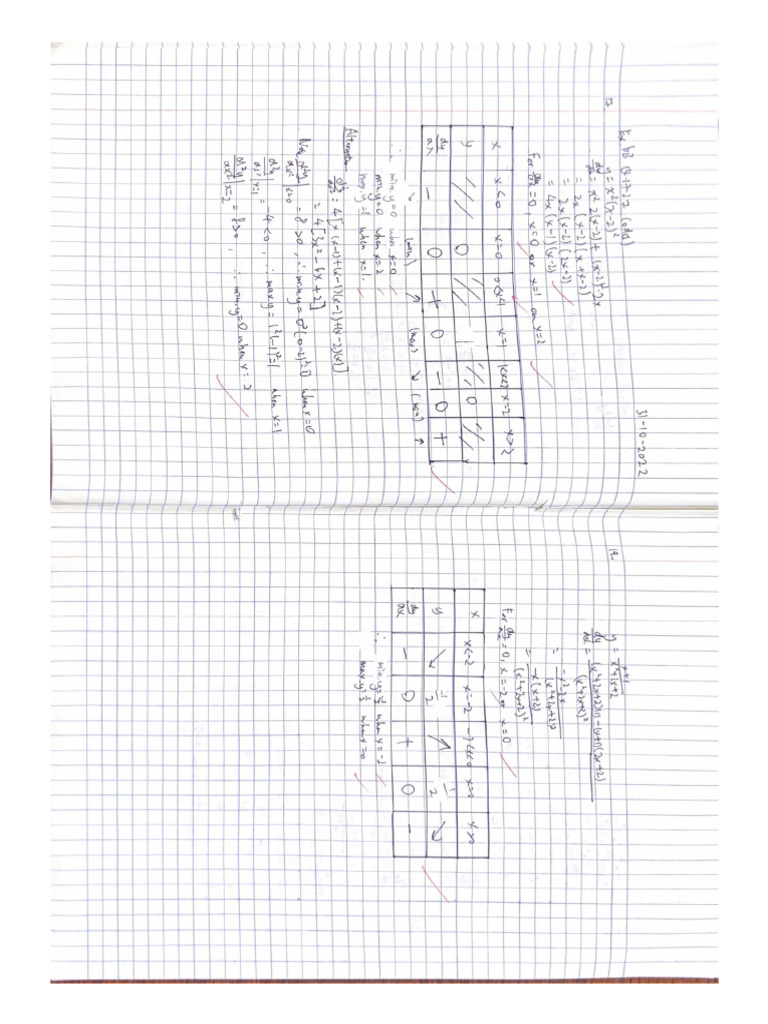 31-10-2022
Ex 6B Q.17-27 (odd)
17. y = x²(x-2)²
dy/dx = x² 2(x-2) + (x-2)² 2x
= 2x (x-2)(x+x-2)
= 2x(x-2)(2x-2)
= 4x(x-1)(x-2)
For dy/dx = 0, x=0 or x=1 or x=2
x x<0 x=0 0<x<1 x=1 1<x<2 x=2 x>2
y 0 1 0
dy/dx - 0 + 0 - 0 +
↘ (min) ↗ (max) ↘ (min) ↗
∴ min.y=0 when x=0
min.y=0 when x=2
max.y=1 when x=1.
d²y/dx² = 4[x(x-1)+(x-1)(x-2)+(x-2)(x)]
= 4[3x²-6x+2]
d²y/dx²|x=0 = 8>0, ∴ min.y = 0²(0-2)²=0 when x=0
d²y/dx²|x=1 = -4<0, ∴ max.y = 1²(-1)²=1 when x=1
d²y/dx²|x=2 = 8>0, ∴ min.y=0 when x=2
19. y = x+1/x²+2x+2
dy/dx = (x²+2x+2)(1)-(x+1)(2x+2)/(x²+2x+2)²
= -x²-2x/(x²+2x+2)²
= -x(x+2)/(x²+2x+2)²
For dy/dx=0, x=-2 or x=0
x x<-2 x=-2 -2<x<0 x=0 x>0
y ↘ -1/2 ↗ 1/2 ↘
dy/dx - 0 + 0 -
∴ min.y=-1/2 when x=-2
max.y=1/2 when x=0